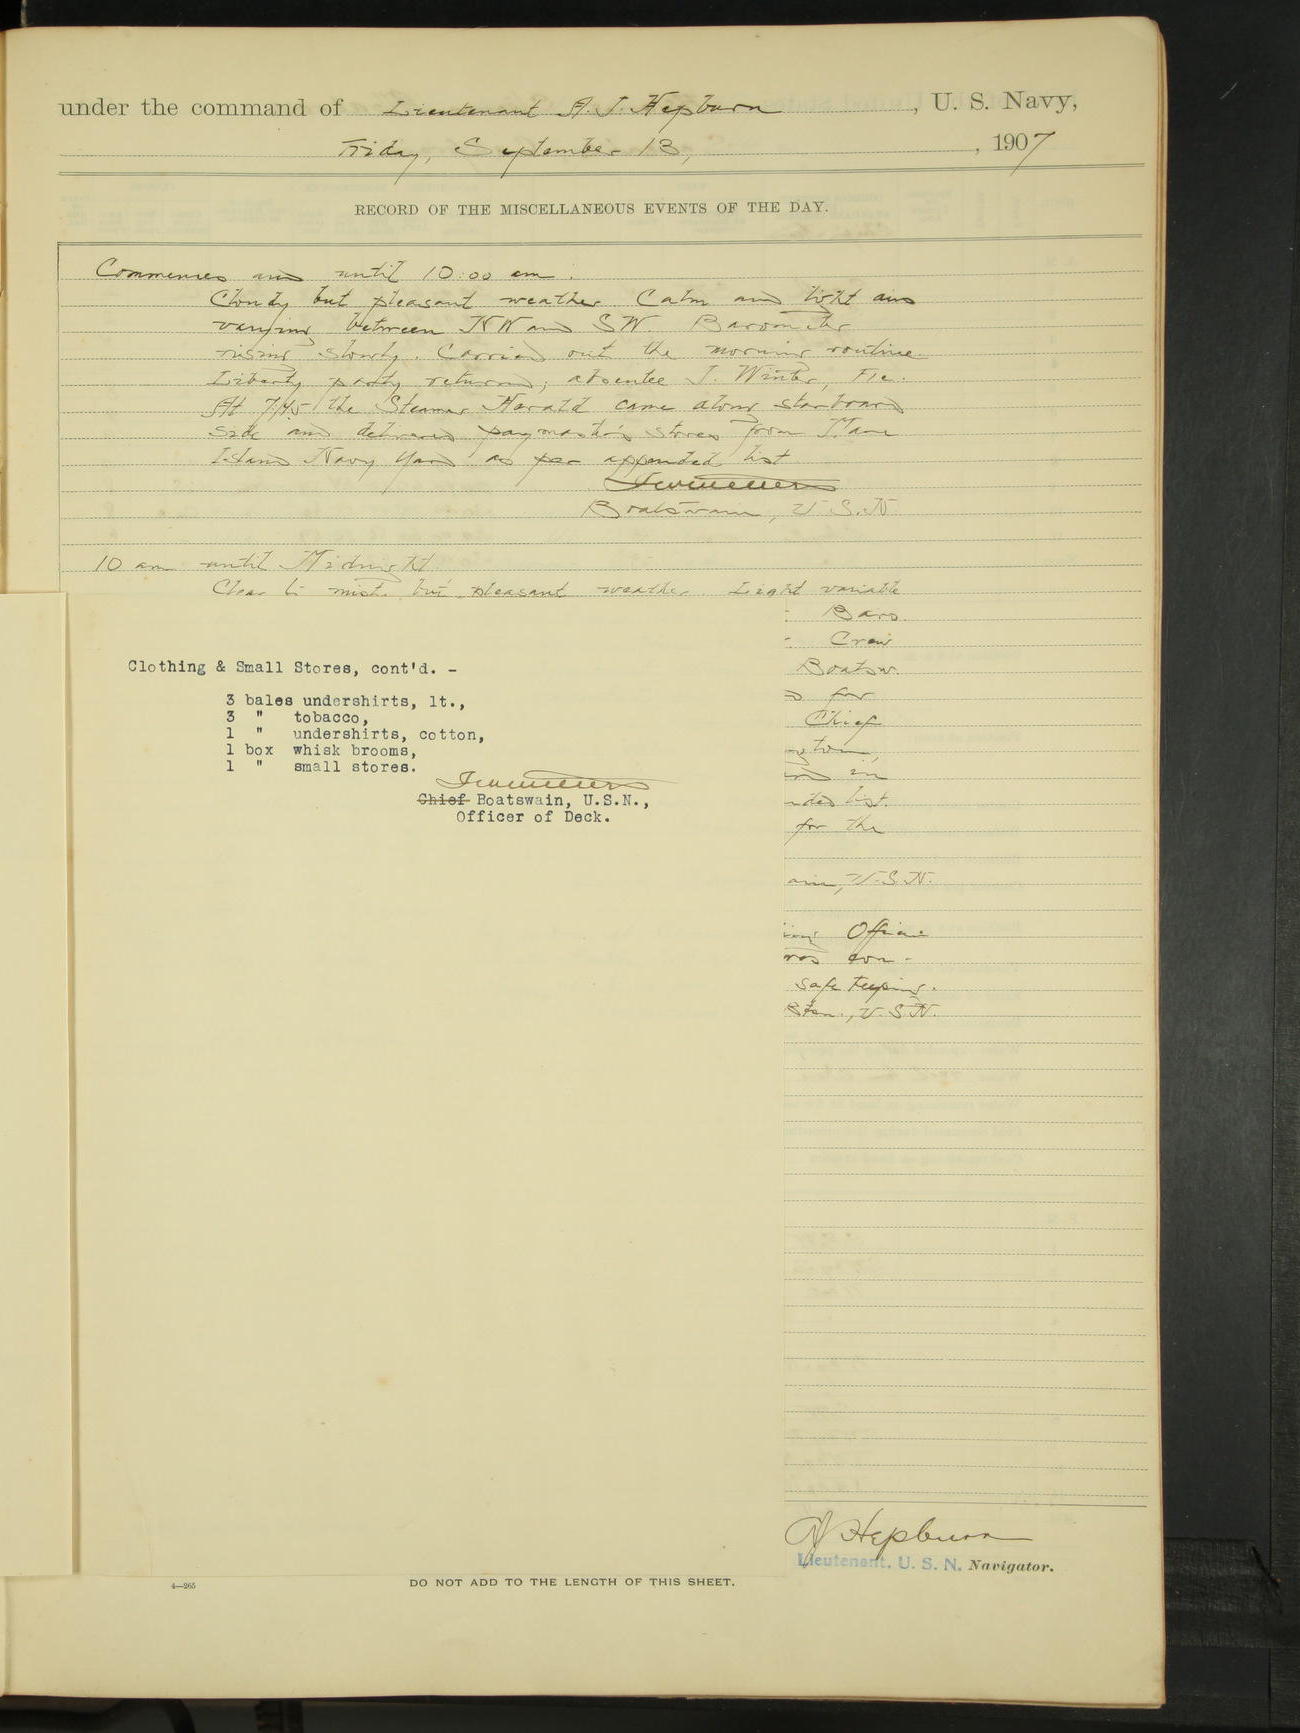 under the command of Lieutenant A. J. Hepburn, U. S. Navy,
Friday, September 13, 1907
RECORD OF THE MISCELLANEOUS EVENTS OF THE DAY.
Commences and until 10:00 am.
Cloudy but pleasant weather Calm and light airs
varying between NW and SW. Barometer
rising slowly. Carried out the morning routine.
Liberty party returned; absentee J. Winter, F1c.
At 7:45 the Steamer Herald came along starboard
side and delivered paymaster's stores from Mare
Island Navy Yard as per appended list
Boatswain, U.S.N.
10 am until Midnight
Clear to misty but pleasant weather. Light variable
Baro.
Crew
Boatsw.
for
Chief
in
list.
for the
U.S.N.
Office
con-
safe keeping.
Btsn., U.S.N.
Clothing & Small Stores, cont'd. -
3 bales undershirts, lt.,
3 " tobacco,
1 " undershirts, cotton,
1 box whisk brooms,
1 " small stores.
Chief Boatswain, U.S.N.,
Officer of Deck.
AJ Hepburn
Lieutenant. U. S. N. Navigator.
4—265
DO NOT ADD TO THE LENGTH OF THIS SHEET.